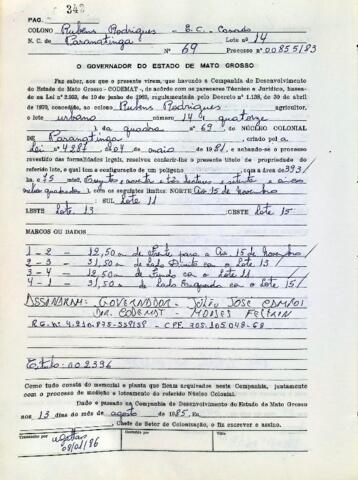 PAG. 343
COLONO Rubens Rodrigues - E.C. - Casado
N. C. de Paranatinga Lote nº 14
Nº 69 Processo nº 00855/83
O GOVERNADOR DO ESTADO DE MATO GROSSO
Faz saber, aos que o presente virem, que havendo a Companhia de Desenvolvimento
do Estado de Mato Grosso - CODEMAT -, de acôrdo com os pareceres Técnico e Jurídico, basea-
do na Lei nº 2.993, de 19 de junho de 1969, regulamentada pelo Decreto nº 1.138, de 30 de abril
de 1970, concedido, ao colono Rubens Rodrigues agricultor,
o lote urbano número 14 quatorze
da quadra nº 69 do NÚCLEO COLONIAL
DE Paranatinga criado por a
Lei nº 4287 de 04 de maio de 1981, e achando-se o processo
revestido das formalidades legais, resolveu conferir-lhe o presente título de propriedade do
referido lote, o qual tem a configuração de um polígono com a área de 393/
75
metros quadrados), com os seguintes limites: NORTE Av. 15 de Novembro
SUL Lote 11
LESTE Lote 13 OESTE Lote 15
MARCOS OU DADOS
1 - 2 - 12,50m de frente para a Av. 15 de Novembro/
2 - 3 - 31,50m de lado Direito c/ o Lote 13 /
3 - 4 - 12,50m de Fundo c/ o Lote 11 /
4 - 1 - 31,50m de lado Esquerdo c/ o Lote 15/
ASSINARAM: GOVERNADOR - JÚLIO JOSÉ CAMPOS
CODEMAT - MOISES FELTRIN
Como tudo consta do memorial e planta que ficam arquivados nesta Companhia, juntamente
com o processo de medição e loteamento do referido Núcleo Colonial.
Dado e passado na Companhia de Desenvolvimento do Estado de Mato Grosso
aos 13 dias do mês de agosto de 1985, Eu
Chefe do Setor de Colonização, o fiz escrever e assino.
Transcrito por
Conferido por
Visto